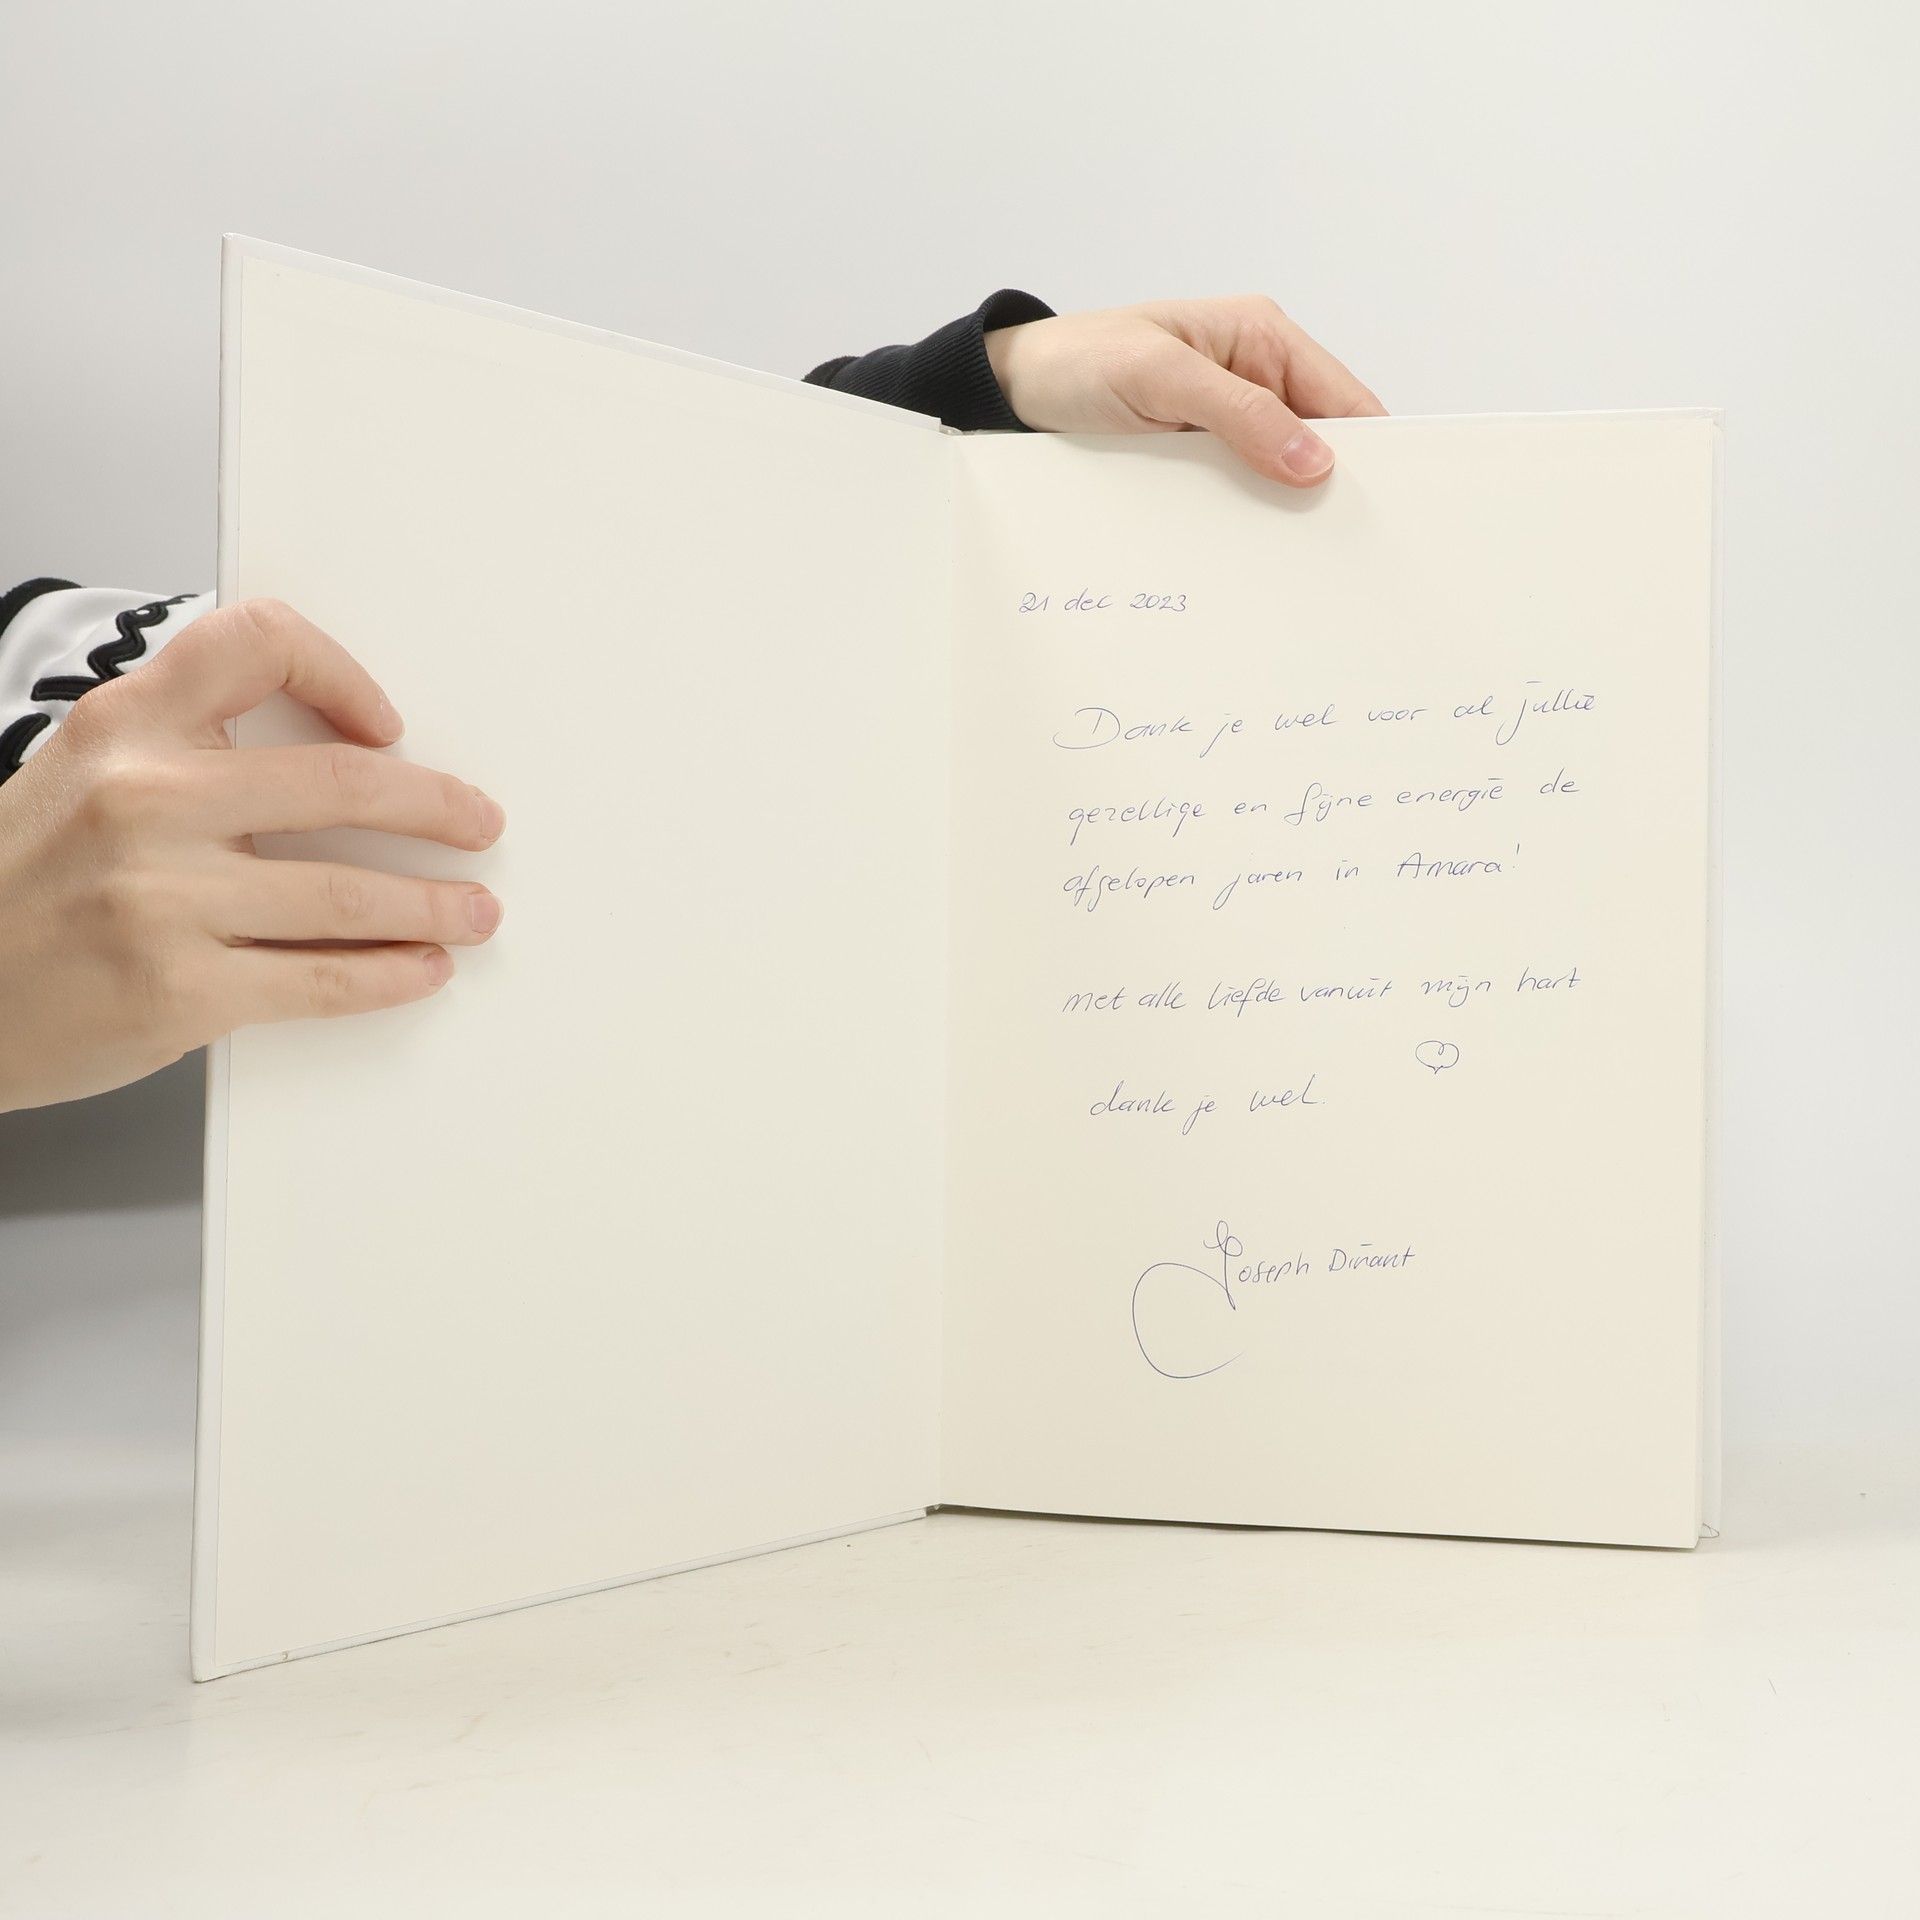 21 dec 2023
Dank je wel voor al jullie
gezellige en fijne energie de
afgelopen jaren in Amara!
Met alle liefde vanuit mijn hart
dank je wel.
Joseph Dinant